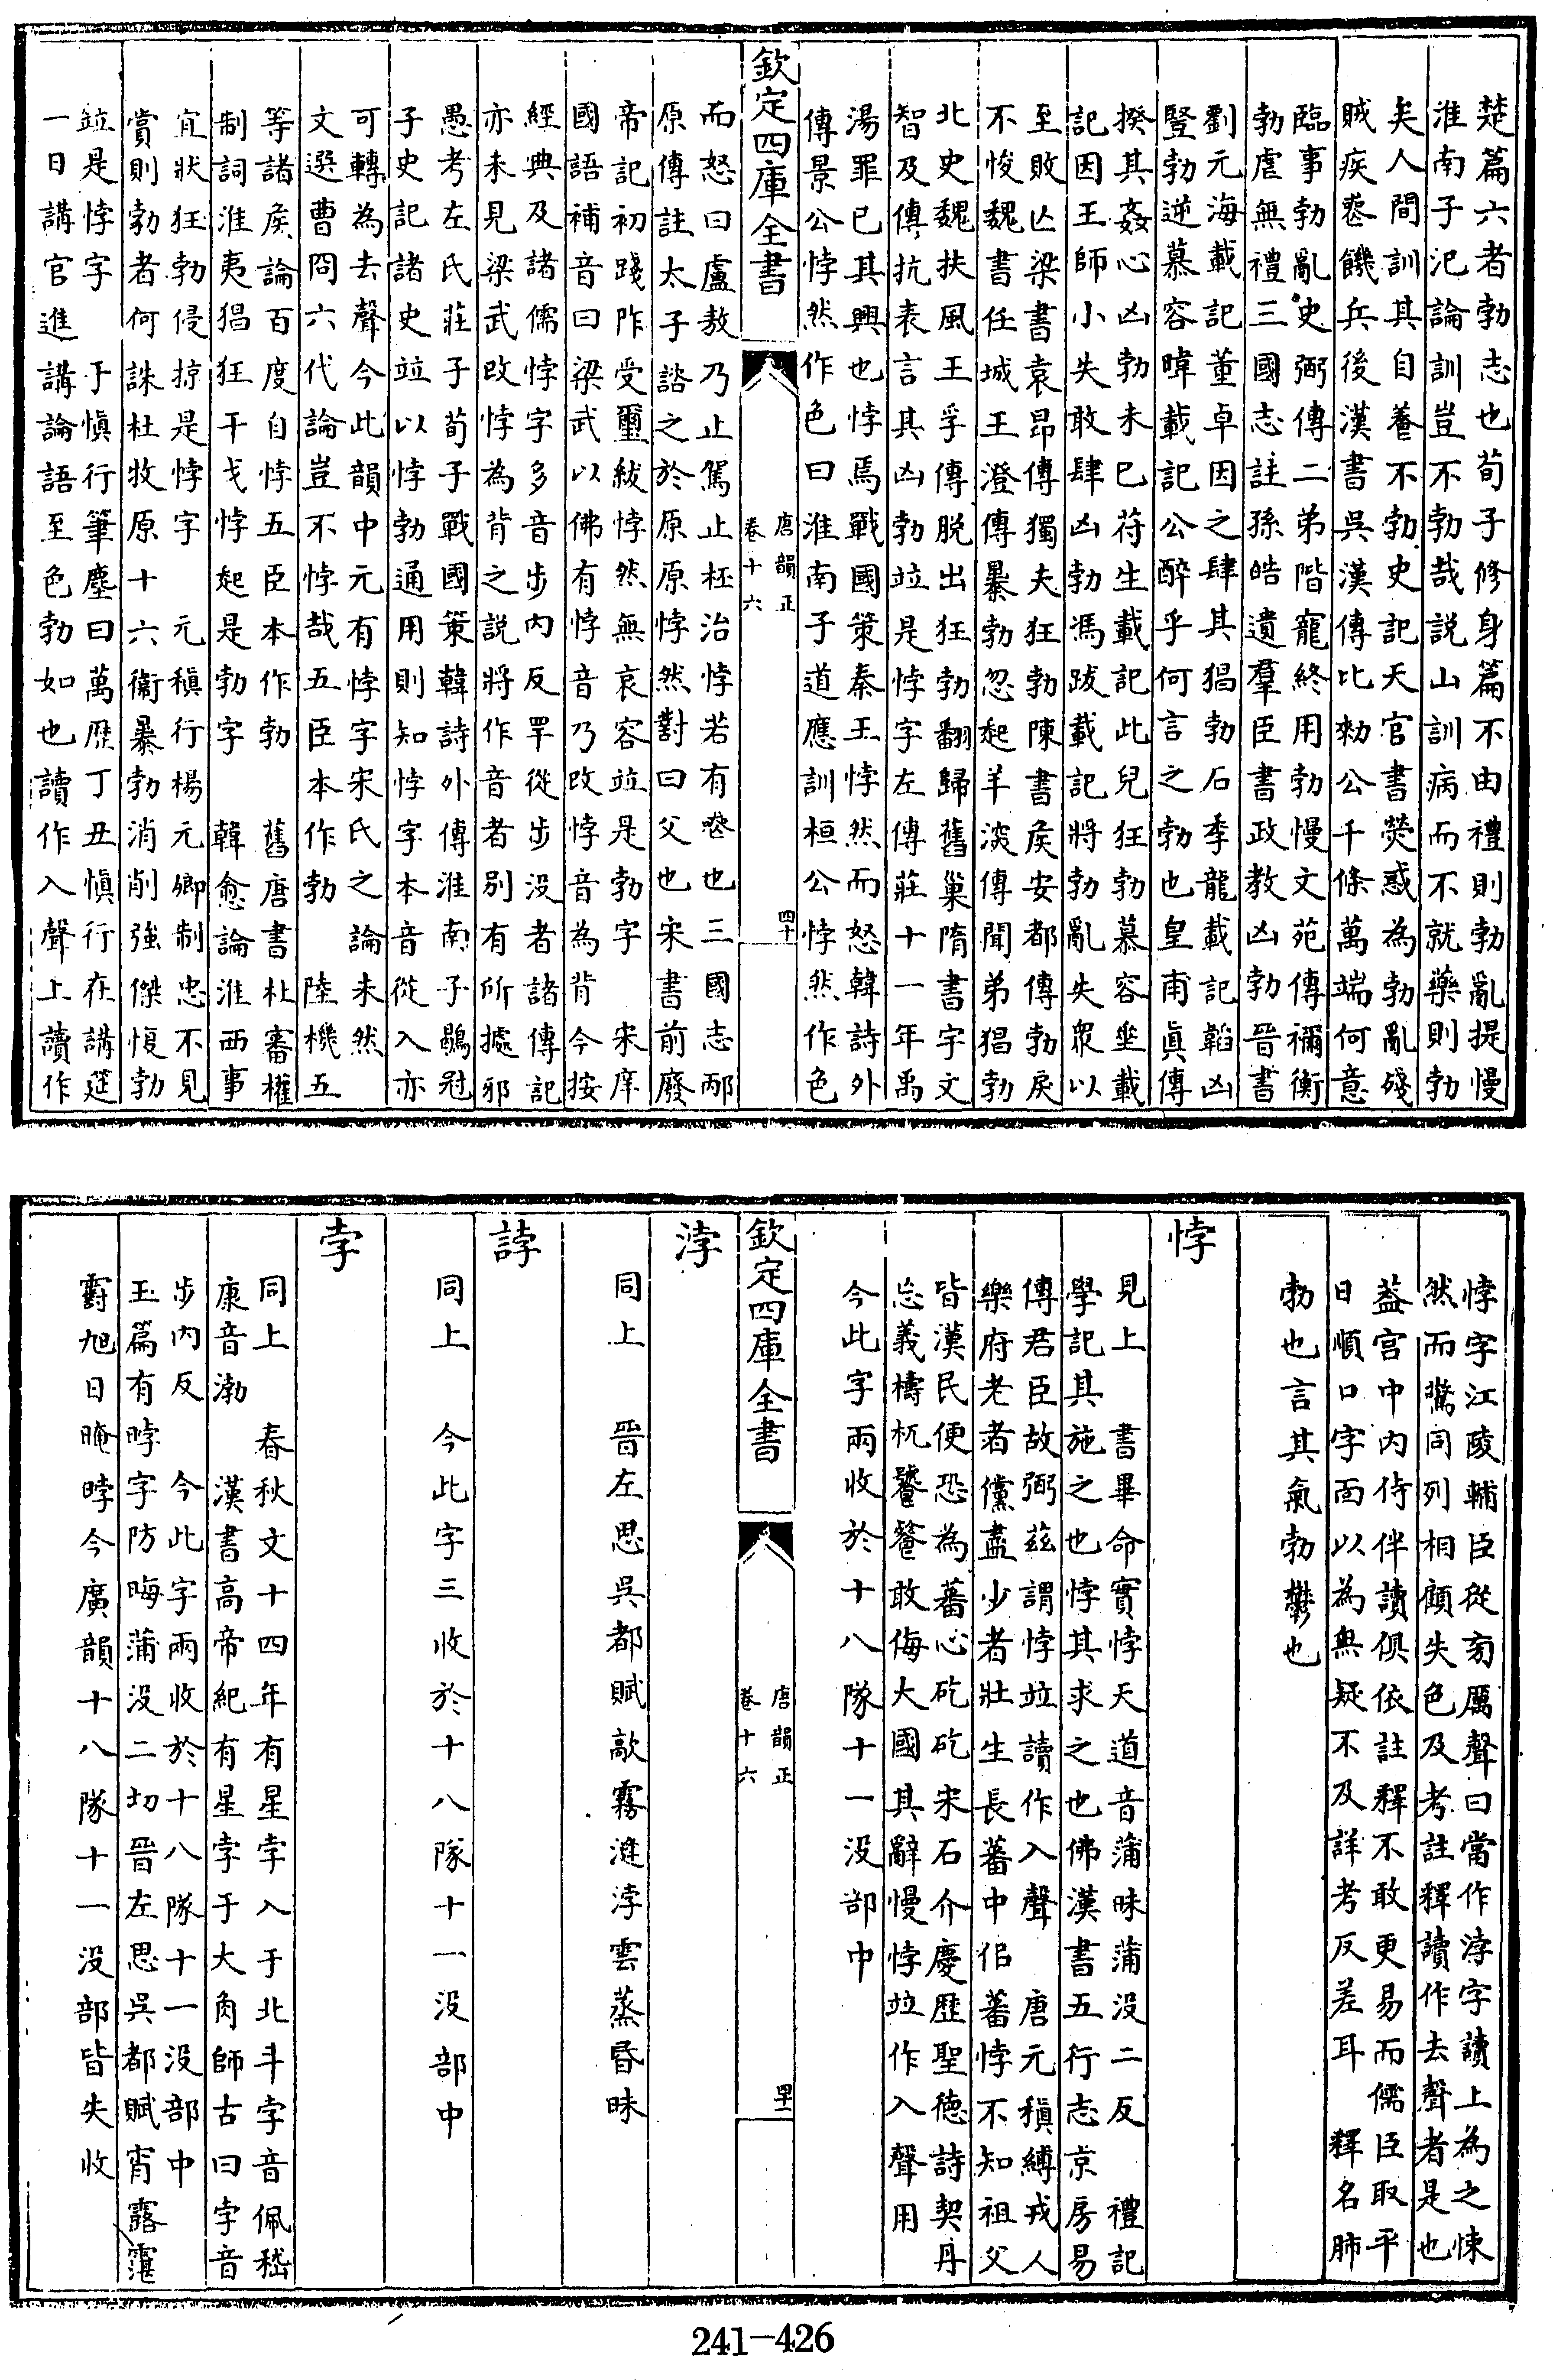 楚篇六者勃志也荀子修身篇不由禮則勃亂提慢
淮南子汜論訓豈不勃哉説山訓病而不就藥則勃
矣人間訓其自養不勃史記天官書熒惑為勃亂殘
賊疾喪饑兵後漢書吳漢傳比勑公千條萬端何意
臨事勃亂史弼傳二弟階寵終用勃慢文苑傳禰衡
勃虐無禮三國志註孫皓遺羣臣書政教凶勃晉書
劉元海載記董卓因之肆其猖勃石季龍載記韜凶
豎勃逆慕容暐載記公醉乎何言之勃也皇甫眞傳
揆其姦心凶勃未已苻生載記此兒狂勃慕容垂載
記因王師小失敢肆凶勃馮跋載記將勃亂失衆以
至敗亡梁書袁昂傳獨夫狂勃陳書侯安都傳勃戾
不悛魏書任城王澄傳暴勃忽起羊深傳聞弟猖勃
北史魏扶風王孚傳脱出狂勃勃翻歸舊巢隋書宇文
智及傳抗表言其凶勃竝是悖字左傳莊十一年禹
湯罪已其興也悖焉戰國策秦王悖然而怒韓詩外
傳景公悖然作色曰淮南子道應訓桓公悖然作色
欽定四庫全書
唐韻正
卷十六
四十
而怒曰盧敖乃止駕止柸治悖若有喪也三國志邴
原傳註太子諮之於原原悖然對曰父也宋書前廢
帝記初踐阼受璽紱悖然無哀容竝是勃字　宋庠
國語補音曰梁武以佛有悖音乃改悖音為背今按
經典及諸儒悖字多音步內反罕從步没者諸傳記
亦未見梁武改悖為背之説將作音者別有所據邪
愚考左氏莊子荀子戰國策韓詩外傳淮南子鶡冠
子史記諸史竝以悖勃通用則知悖字本音從入亦
可轉為去聲今此韻中元有悖字宋氏之論未然
文選曹冏六代論豈不悖哉五臣本作勃　陸機五
等諸侯論百度自悖五臣本作勃　舊唐書杜審權
制詞淮夷猖狂干戈悖起是勃字　韓愈論淮西事
宜狀狂勃侵掠是悖字　元稹行楊元卿制忠不見
賞則勃者何誅杜牧原十六衞暴勃消削強傑愎勃
竝是悖字　于慎行筆塵曰萬歷丁丑愼行在講筵
一日講官進講論語至色勃如也讀作入聲上讀作
悖字江陵輔臣從旁厲聲曰當作浡字讀上為之悚
然而驚同列相顧失色及考註釋讀作去聲者是也
葢宫中內侍伴讀俱依註釋不敢更易而儒臣取平
日順口字面以為無疑不及詳考反差耳　釋名肺
勃也言其氣勃鬱也
悖
見上　書畢命實悖天道音蒲昧蒲没二反　禮記
學記其施之也悖其求之也佛漢書五行志京房易
傳君臣故弼茲謂悖竝讀作入聲　唐元稹縛戎人
樂府老者儻盡少者壯生長蕃中佀蕃悖不知祖父
皆漢民便恐為蕃心矻矻宋石介慶歷聖徳詩契丹
忘義檮杌饕餮敢侮大國其辭慢悖竝作入聲用
今此字兩收於十八隊十一没部中
浡
欽定四庫全書
唐韻正
卷十六
四十一
同上　晉左思吳都賦歊霧漨浡雲蒸昏昧
誖
同上　今此字三收於十八隊十一没部中
孛
同上　春秋文十四年有星孛入于北斗孛音佩嵇
康音渤　漢書高帝紀有星孛于大角師古曰孛音
步內反　今此字兩收於十八隊十一没部中
玉篇有㫲字防晦蒲没二切晉左思吳都賦宵露霮
䨴旭日晻㫲今廣韻十八隊十一没部皆失收
241-426